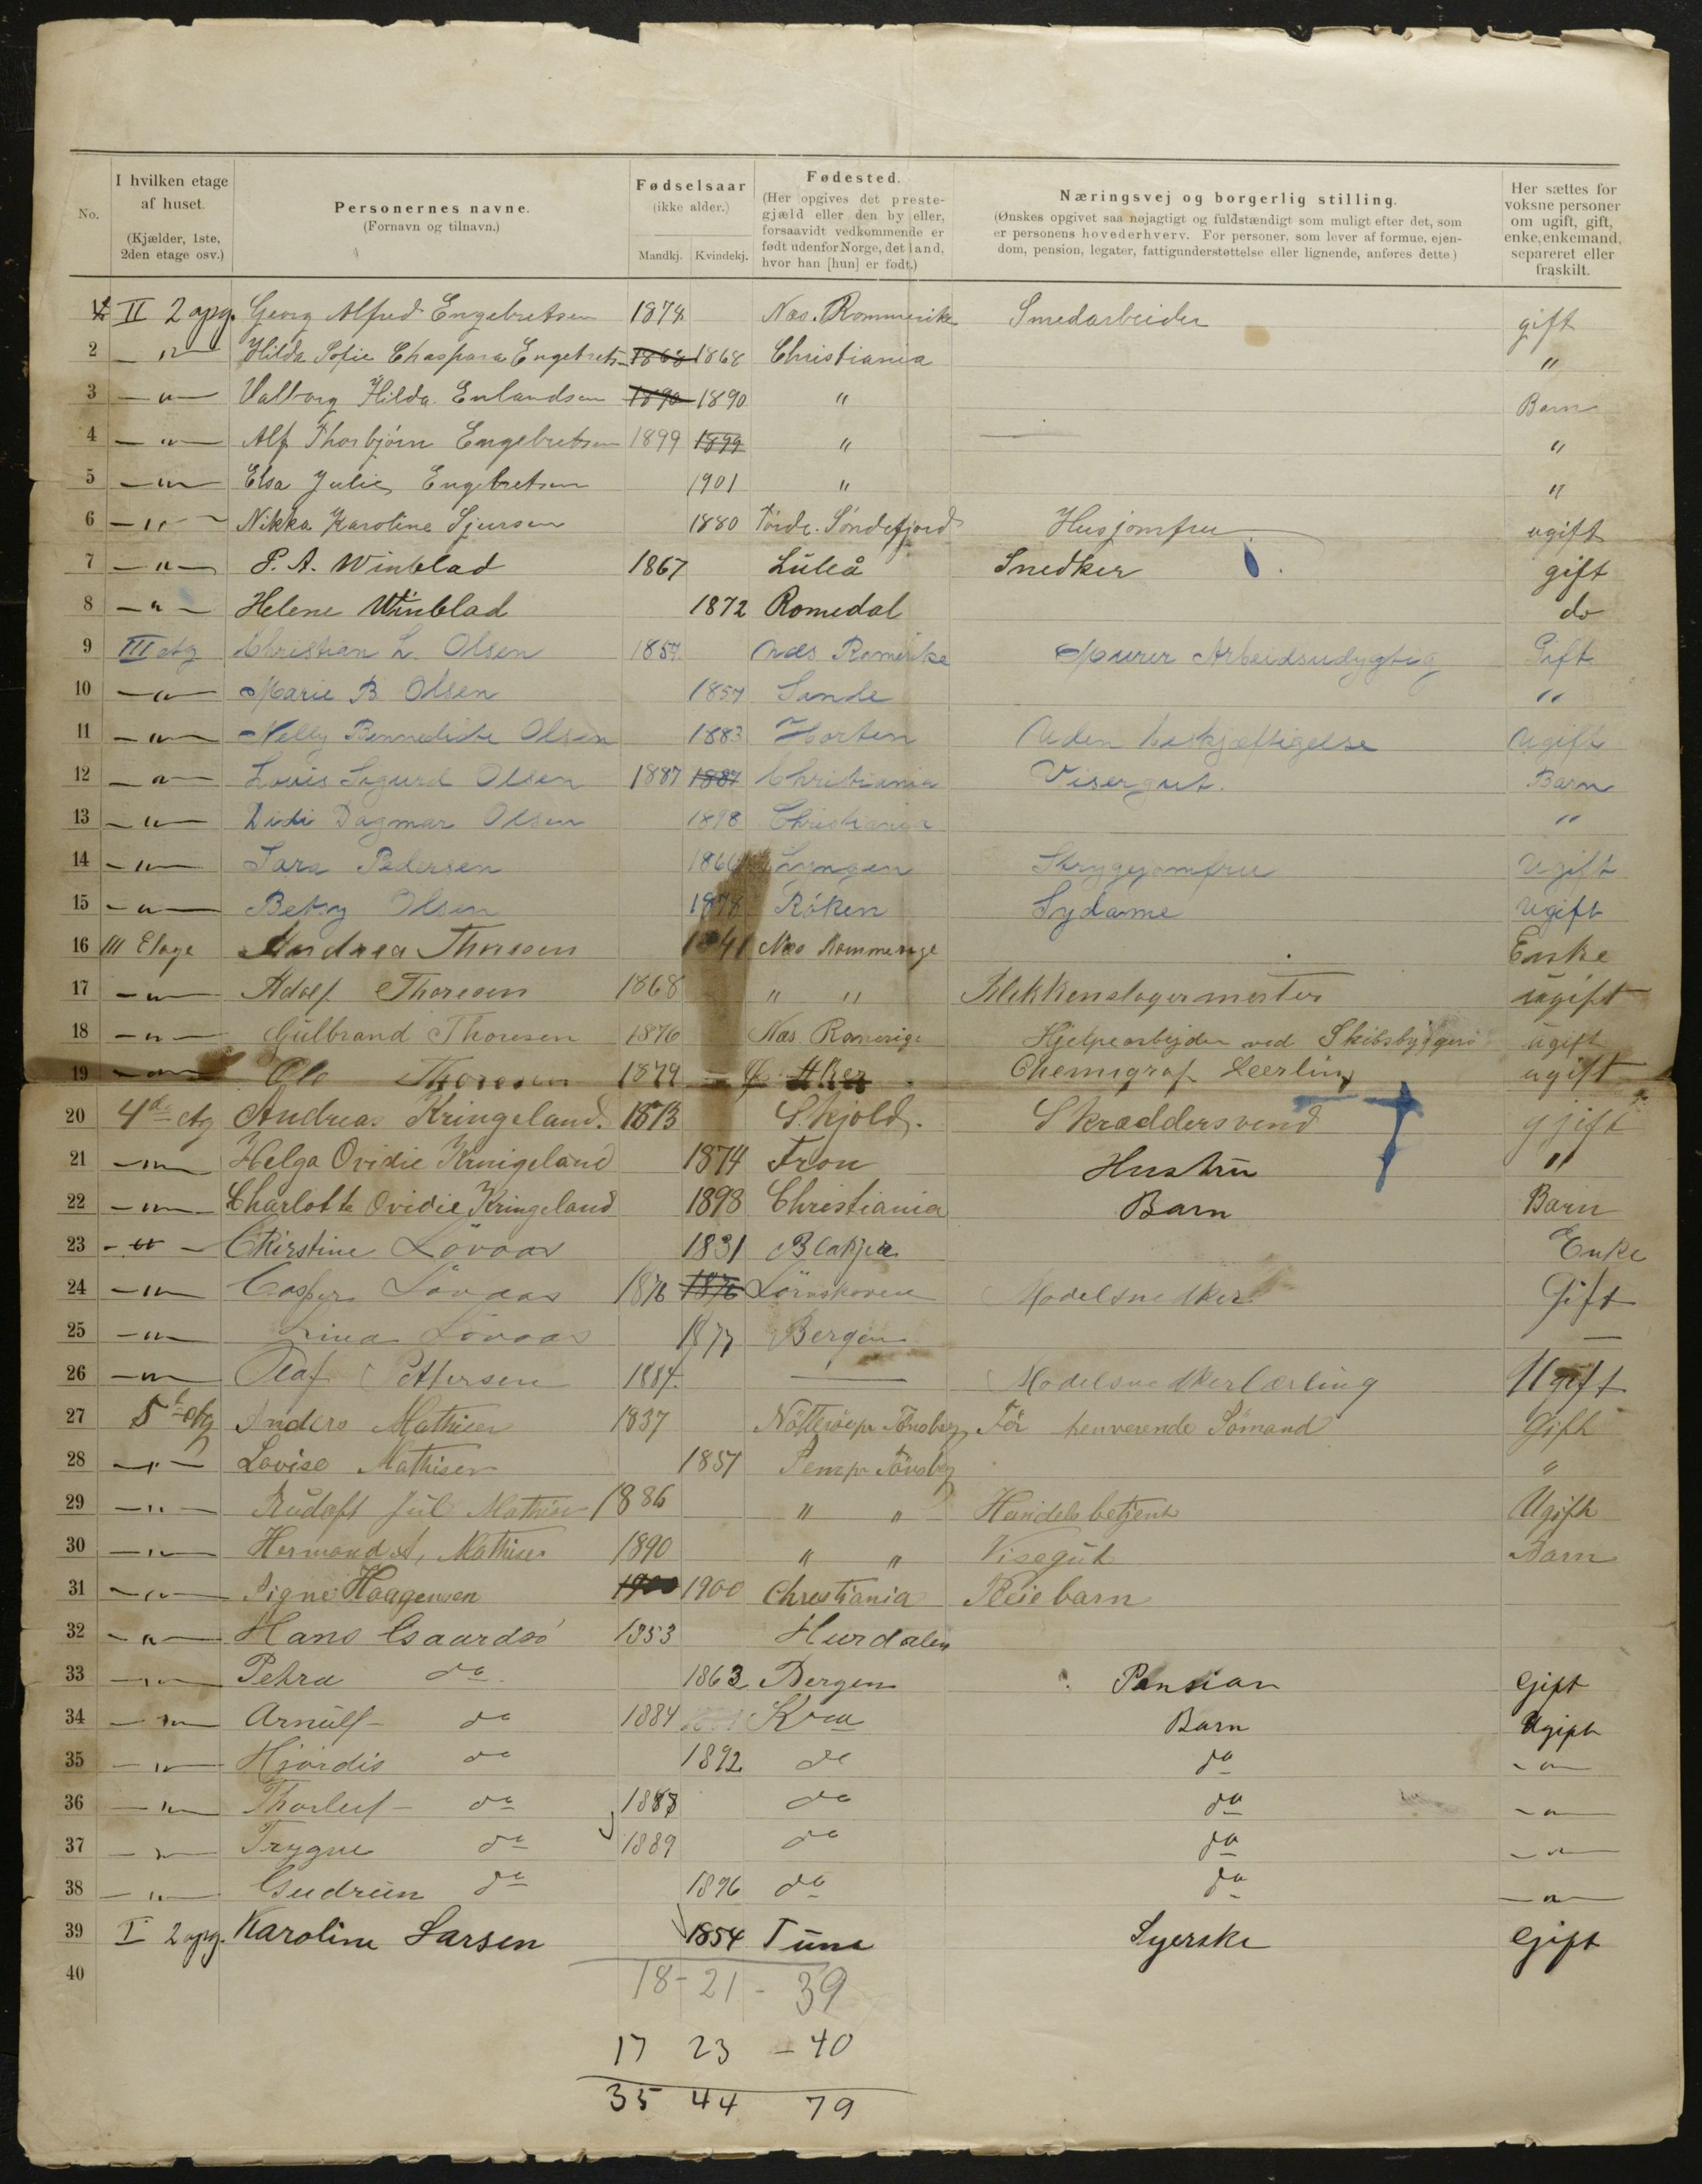 No.
I hvilken etage af huset. (Kjælder, 1ste, 2den etage osv.)
Personernes navne. (Fornavn og tilnavn.)
Fødselsaar (ikke alder.) Mandkj. Kvindekj.
Fødested. (Her opgives det prestegjæld eller den by eller, forsaavidt vedkommende er født udenfor Norge, det land, hvor han [hun] er født.)
Næringsvej og borgerlig stilling. (Ønskes opgivet saa nøjagtigt og fuldstændigt som muligt efter det, som er personens hovederhverv. For personer, som lever af formue, ejendom, pension, legater, fattigunderstøttelse eller lignende, anføres dette.)
Her sættes for voksne personer om ugift, gift, enke, enkemand, separeret eller fraskilt.
1 II 2 opg. Georg Alfred Engebretsen 1878 Næs. Rommerike Smedarbeider gift
2 — " — Hilda Sofie Chaspara Engebretsen 1868 1868 Christiania "
3 — " — Valborg Hilda Erlandsen 1890 1890 " Barn
4 — " — Alf Thorbjørn Engebretsen 1899 1899 " "
5 — " — Elsa Julie Engebretsen 1901 " "
6 — " — Nikka Karoline Sjursen 1880 Førde. Søndefjord Husjomfru ugift
7 — " — P. A. Winblad 1867 Luleå Snedker gift
8 — " — Helene Winblad 1872 Romedal do
9 III etg Christian L. Olsen 1857 Næs Romerike Murer Arbeidsudygtig Gift
10 — " — Marie B Olsen 1857 Sande "
11 — " — Nelly Bennedicte Olsen 1883 Horten Uden beskjæftigelse Ugift
12 — " — Louis Sigurd Olsen 1887 1887 Christiania Visergut. Barn
13 — " — Didi Dagmar Olsen 1898 Christiania "
14 — " — Sara Pedersen Lyngen Strygejomfru Ugift
15 — " — Betsy Olsen 1878 Røken Sydame Ugift
16 III Etage Andrea Thoresen 1841 Næs Rommerige Enke
17 — " — Adolf Thoresen 1868 " " Blikkenslagermester ugift
18 — " — Gulbrand Thoresen 1876 Næs Romerige Hjelpearbejder ved Skibsbyggeri ugift
19 — " — Ole Thoresen 1879 Aker Chemigraf Leerling ugift
20 4de etg Andreas Kringeland. 1873 Skjold. Skræddersvend gjift
21 — " — Helga Ovidie Kringeland 1874 Fron Hustru "
22 — " — Charlotte Ovidie Kringeland 1898 Christiania Barn Barn
23 — " — Chirstine Lövaas 1831 Blakjer Enke
24 — " — Casper Lövaas 1876 1876 Lörnskoven Modelsnedker Gift
25 — " — Lina Lövaas 1877 Bergen —
26 — " — Olaf Pettersen 1884 — Modelsnedkerlærling Ugift
27 5te etg Anders Mathisen 1837 Nötterö pr Tönsberg Før henværende Sömand Gift
28 — " — Lovise Mathisen 1857 Sem pr Tönsberg "
29 — " — Rudolf Jul Mathisen 1886 " " Handelsbetjent Ugift
30 — " — Hermand A, Mathisen 1890 " " Visegut Barn
31 — " — Signe Haagensen 1900 1900 Christiania Pleiebarn
32 — " — Hans Gaardsø 1853 Hurdalen
33 — " — Petra do 1863 Bergen Pension Gift
34 — " — Arnulf do 1884 Kra Barn Ugift
35 — " — Hjørdis do 1892 do do — " —
36 — " — Thorleif do 1887 do do — " —
37 — " — Trygve do 1889 do do — " —
38 — " — Gudrun do 1896 do do — " —
39 I 2 opg. Karoline Larsen 1854 Tune Syerske Gift
40
18 - 21 - 39
17 23 - 40
35 44 79